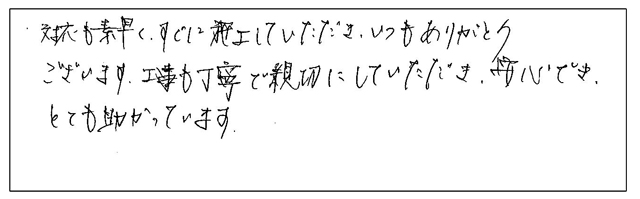 対応も素早く、すぐに施工していただき、いつもありがとう
ございます。工事も丁寧で親切にしていただき、安心でき、
とても助かっています。